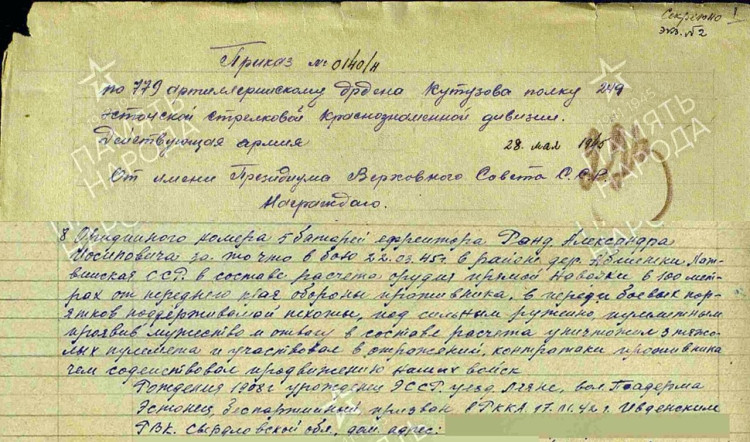 Секретно
экз. №2
1
Приказ № 0140/н
по 779 артиллерийскому ордена Кутузова полку 249
эстонской стрелковой Краснознаменной дивизии.
Действующая армия 28 мая 1945
От имени Президиума Верховного Совета С.С.Р.
Награждаю.
8 Орудийного номера 5 батареи ефрейтора Ранд Александра
Иосиповича за то что в бою 22.03.45г. в районе дер. Лат-
вийская ССР. в составе расчета орудия прямой наводки в 100 мет-
рах от переднего края обороны противника, в переди боевых пор-
ятков поддерживаемой пехоты, под сильным ружейно, пулеметным
проявив мужество и отвагу в составе расчета уничтожил 3 тяжо-
лых пулемета и участвовал в отражений, контратаки противника
чем содействовал продвижению наших войск
Рождения 1908г. урожденец ЭССР. уезд. Ляяне, вол. Паадерма
Эстонец беспартийный призван в РККА 17.11.42г. Ивденским
РВК. Свердловской обл., дом. адрес:
ПАМЯТЬ
НАРОДА
ПАМЯТЬ
НАРОДА